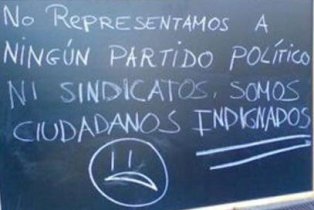 No REPRESENTAMOS A
NINGÚN PARTIDO POLÍTICO
NI SINDICATOS, SOMOS
CIUDADANOS INDIGNADOS